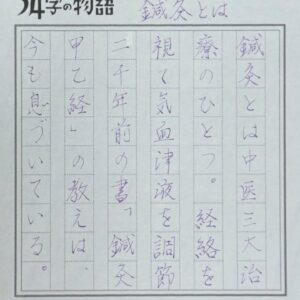 54字の物語
鍼灸とは
鍼灸とは中医三大治
療のひとつ。経絡を
視て気血津液を調節
二千年前の書「鍼灸
甲乙経」の教えは、
今も息づいている。